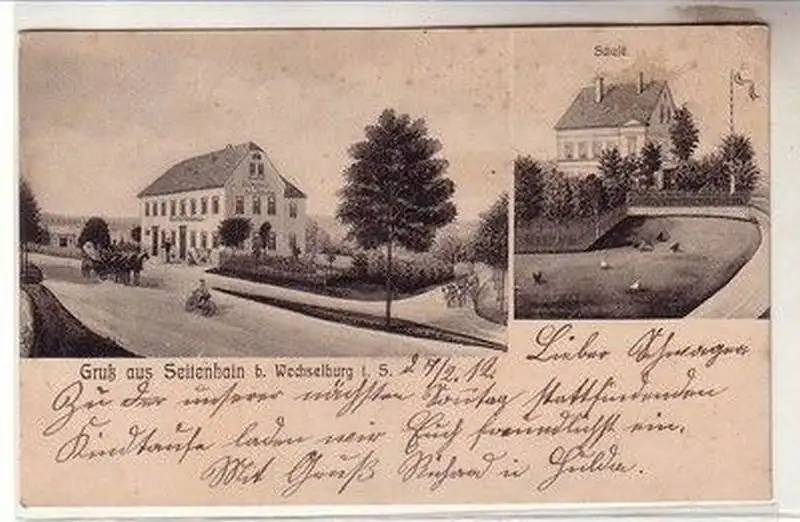 Schule.
Gruß aus Seitenhain b. Wechselburg i. S. d 4/2.12.
Lieber Schwager
Zu der unserer nächsten Sontag stattfindenden
Kindtaufe laden wir Euch freundlichst ein.
Mit Gruß Richard u Hulda.